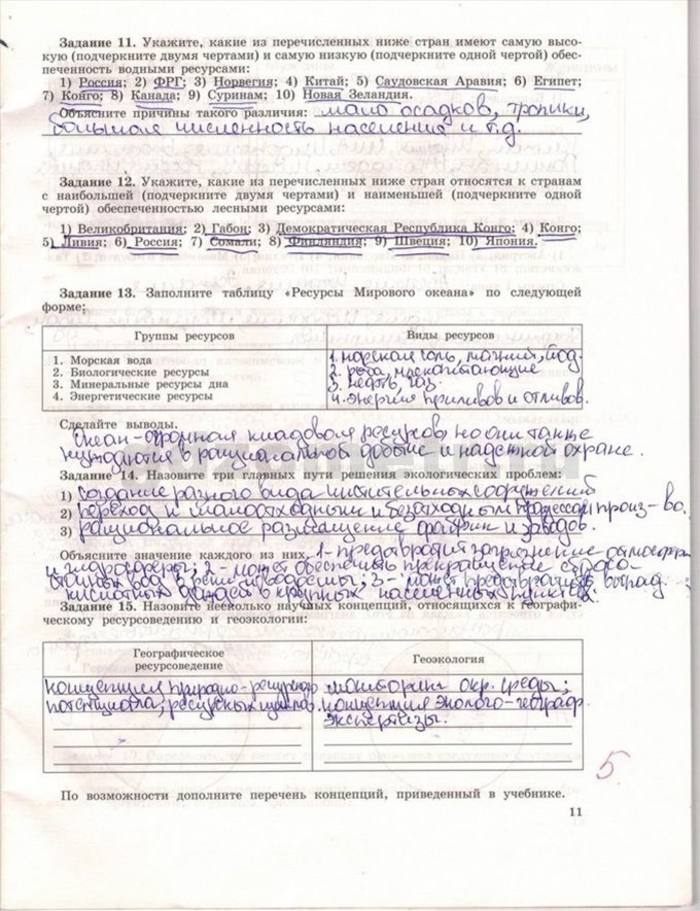 Задание 11. Укажите, какие из перечисленных ниже стран имеют самую высо-
кую (подчеркните двумя чертами) и самую низкую (подчеркните одной чертой) обес-
печенность водными ресурсами:
1) Россия; 2) ФРГ; 3) Норвегия; 4) Китай; 5) Саудовская Аравия; 6) Египет;
7) Конго; 8) Канада; 9) Суринам; 10) Новая Зеландия.
Объясните причины такого различия: мало осадков, тропики,
большая численность населения и т.д.
Задание 12. Укажите, какие из перечисленных ниже стран относятся к странам
с наибольшей (подчеркните двумя чертами) и наименьшей (подчеркните одной
чертой) обеспеченностью лесными ресурсами:
1) Великобритания; 2) Габон; 3) Демократическая Республика Конго; 4) Конго;
5) Ливия; 6) Россия; 7) Сомали; 8) Финляндия; 9) Швеция; 10) Япония.
Задание 13. Заполните таблицу «Ресурсы Мирового океана» по следующей
форме:
Группы ресурсов Виды ресурсов
1. Морская вода 1. морская соль, магний, йод.
2. Биологические ресурсы 2. рыба, млекопитающие
3. Минеральные ресурсы дна 3. нефть, газ.
4. Энергетические ресурсы 4. энергия приливов и отливов.
Сделайте выводы.
Океан-огромная кладовая ресурсов, но они также
нуждаются в рациональной добыче и надежной охране.
Задание 14. Назовите три главных пути решения экологических проблем:
1) создание разного вида чистительных сооружений
2) переход к малоотходным и безотходным процессам произ-ва.
3) рациональное размещение фабрик и заводов.
Объясните значение каждого из них. 1-предотвратит загрязнение атмосферы
и гидросферы; 2-может обеспечить прекращение сброса
сточных вод в реки и водоёмы; 3-может предотвратить выпад.
кислотных дождей в крупных населенных пунктах.
Задание 15. Назовите несколько научных концепций, относящихся к географи-
ческому ресурсоведению и геоэкологии:
Географическое
ресурсоведение Геоэкология
концепция природно-ресурсного мониторинг окр. среды;
потенциала, ресурсных циклов. концепция эколого-географ.
экспертизы.
5
По возможности дополните перечень концепций, приведенный в учебнике.
11